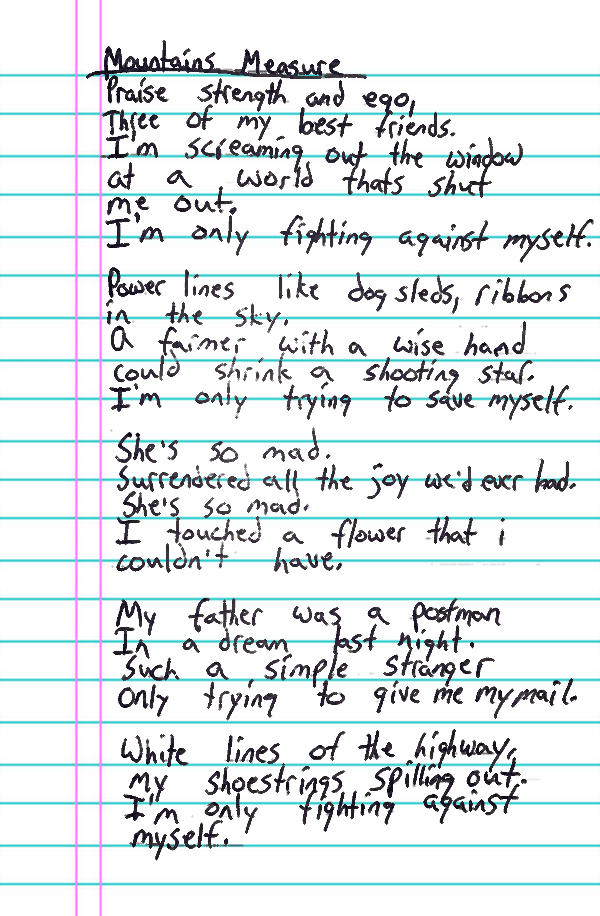 Mountains Measure
Praise strength and ego,
Three of my best friends.
I'm screaming out the window
at a world thats shut
me out.
I'm only fighting against myself.
Power lines like dog sleds, ribbons
in the sky.
A farmer with a wise hand
could shrink a shooting star.
I'm only trying to save myself.
She's so mad.
Surrendered all the joy we'd ever had.
She's so mad.
I touched a flower that i
couldn't have.
My father was a postman
In a dream last night.
Such a simple stranger
Only trying to give me my mail.
White lines of the highway,
my shoestrings spilling out.
I'm only fighting against
myself.